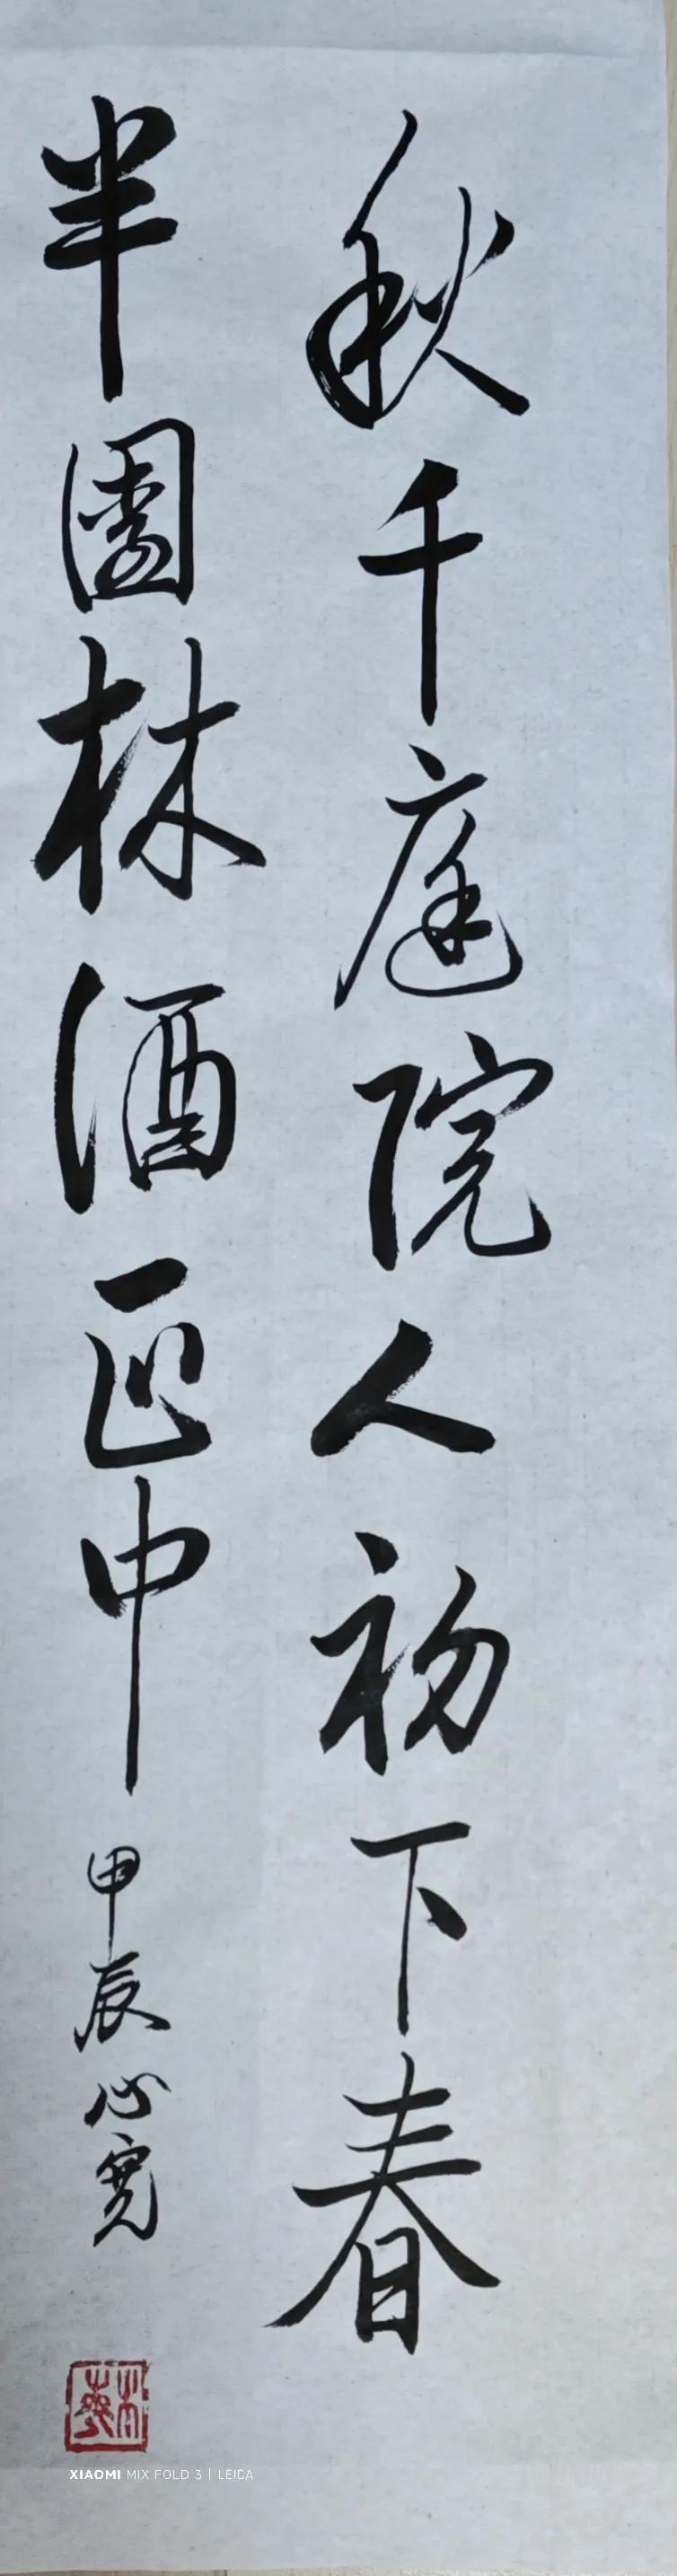 秋千庭院人初下春
半園林酒正中
甲辰心寬
XIAOMI MIX FOLD 3 | LEICA